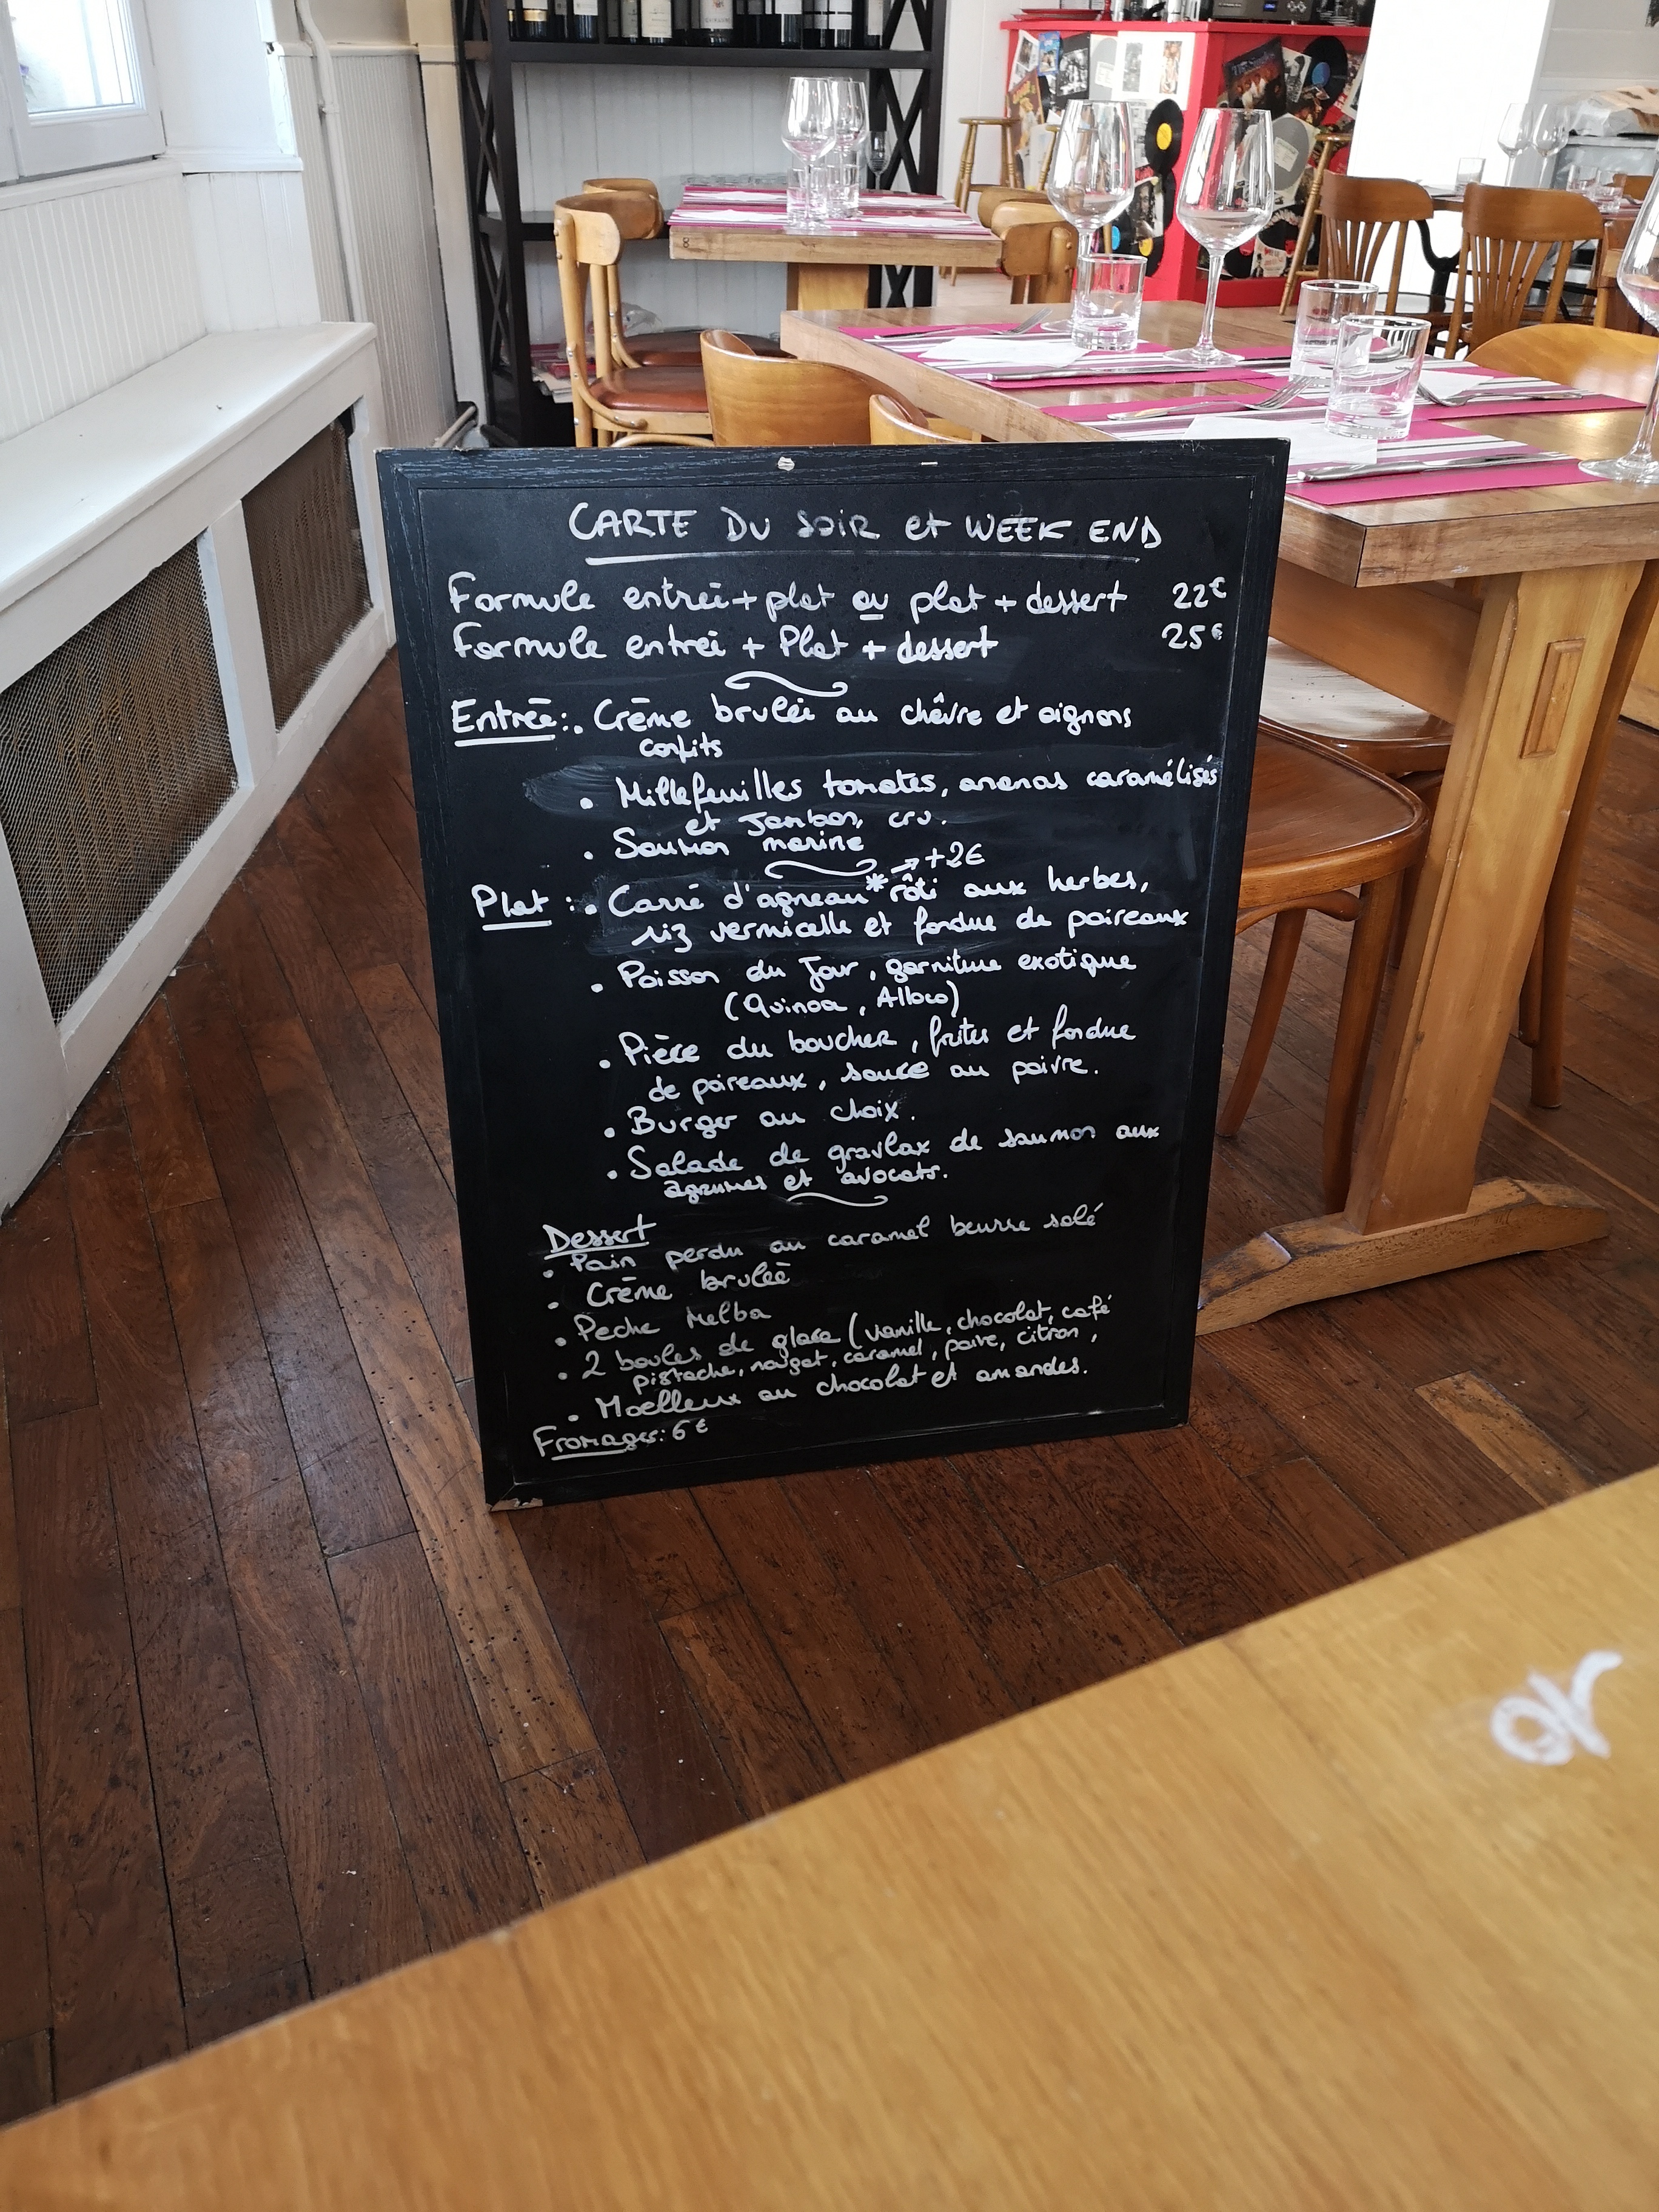 CARTE DU SOIR et WEEK END
Formule entrée + plat ou plat + dessert 22€
Formule entrée + Plat + dessert 25€
Entrée : . Crème brulée au chêvre et oignons
confits
. Millefeuilles tomates, ananas caramélisés
et Jambon cru.
. Saumon mariné
→ +2€
Plat : . Carré d'agneau* rôti aux herbes,
riz vermicelle et fondue de poireaux
. Poisson du Jour, garniture exotique
(Quinoa, Alloco)
. Pièce du boucher, frites et fondue
de poireaux, sauce au poivre.
. Burger au choix.
. Salade de gravlax de saumon aux
agrumes et avocats.
Dessert
. Pain perdu au caramel beurre salé
. Crème brulée
. Peche Melba
. 2 boules de glace (vanille, chocolat, café
pistache, nougat, caramel, poire, citron,
. Moelleux au chocolat et amandes.
Fromages : 6€
8